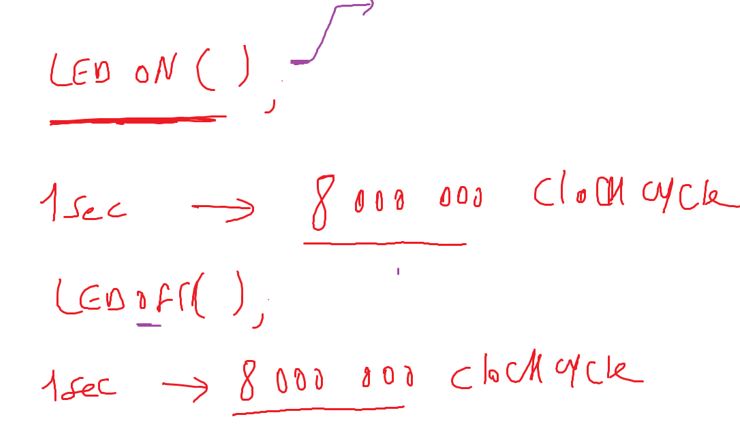 LED ON ( ) ;
1 sec → 8 000 000 clock cycle
LED off( ) ;
1 sec → 8 000 000 clock cycle